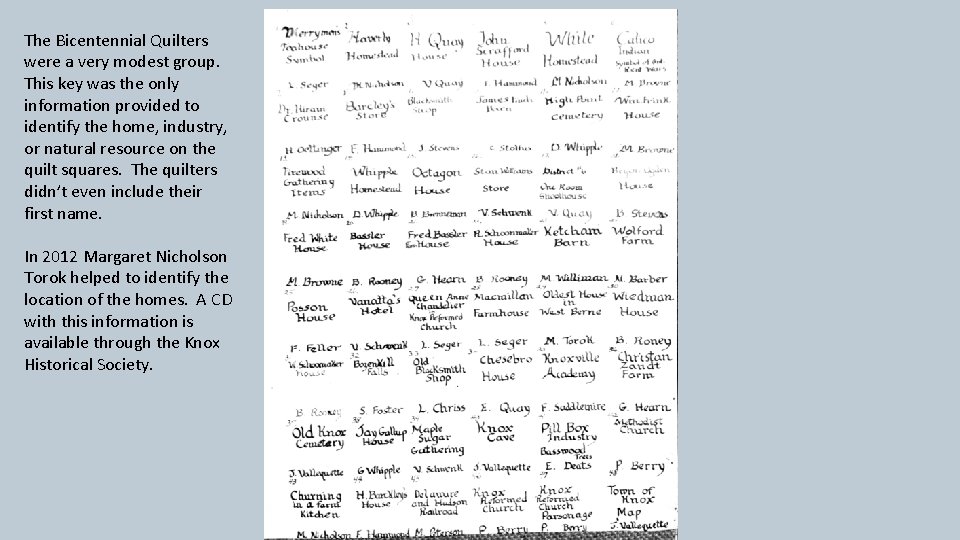 The Bicentennial Quilters
were a very modest group.
This key was the only
information provided to
identify the home, industry,
or natural resource on the
quilt squares. The quilters
didn't even include their
first name.
In 2012 Margaret Nicholson
Torok helped to identify the
location of the homes. A CD
with this information is
available through the Knox
Historical Society.
Merrymen Haverly H Quay John White Calico
Teahouse Homestead House Scrafford Homestead Indian
Symbol House Symbol of Anti Rent Wars
L Seger M. Nicholson V Quay I Hammond M Nicholson M. Browne
Dr. Hiram Barcley's Blacksmith James Each High Point Wen Frink
Crounse Store Shop Barn Cemetery House
H Oellinger F. Hammond J Stevens C Stolhus D. Whipple M. Browne
Firewood Whipple Octagon Stan Williams District #6 Ogden
Gathering Homestead House Store One Room House
Items Schoolhouse
M. Nicholson D. Whipple B Brenneman V. Schwenk V. Quay B. Stevens
Fred White Bassler Fred Bassler R. Schoonmaker Ketcham Wolford
House House House House Barn Farm
M. Browne B. Rooney G. Hearn B Rooney M Williman M. Barber
Posson Vanatta's Queen Anne Macraillan Oldest House Wiedman
House Hotel Chandelier Farmhouse in House
Knox Reformed West Berne
Church
F. Feller V. Schwenk L. Seger L Seger M. Torok B. Roney
W Schoonmaker Bozenkill Old Chesebro Knoxville Christan
House Falls Blacksmith House Academy Zandt
Shop Farm
B Rooney S. Foster L. Chriss E. Quay F. Saddlemire G. Hearn
Old Knox Jay Gallup Maple Knox Pill Box Methodist
Cemetery House Sugar Cave Industry Church
Gathering Basswood
Trees
J. Vallequette G Whipple V. Schwenk J Vallequette E. Deats P Berry
Churning H. Barckley's Delaware Knox Knox Town of
in a farm House and Hudson Reformed Reformed Knox
Kitchen Railroad Church Church Map
Parsonage
M. Nicholson F. Hammond M. Peterson P. Berry P. Berry J. Vallequette